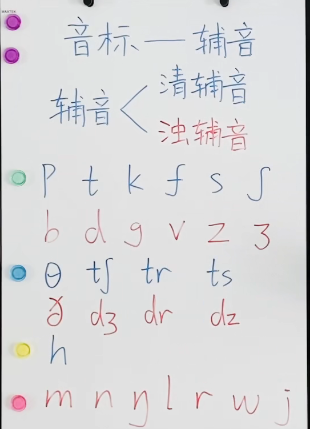 音标—辅音
清辅音
辅音<
浊辅音
p t k f s ʃ
b d g v z ʒ
θ tʃ tr ts
ð dʒ dr dz
h
m n ŋ l r w j